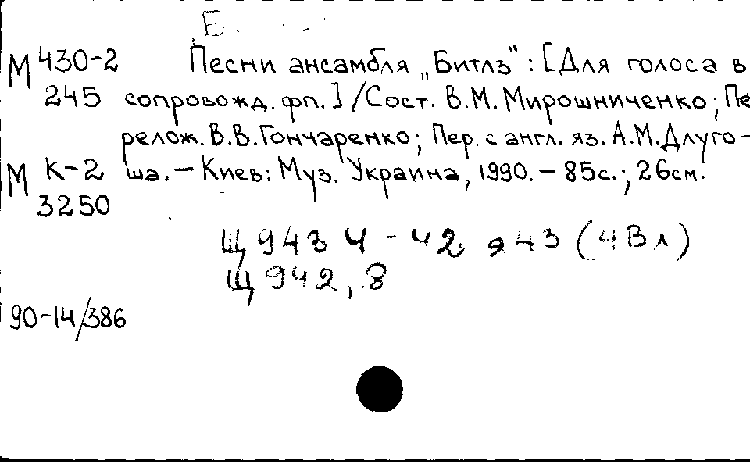 Е
М 430-2 Песни ансамбля „Битлз“: [Для голоса в
245 сопровожд. фп.] / Сост. В.М. Мирошниченко; Пе
релож. В.В. Гончаренко; Пер. с англ. яз. А.М. Длуго-
М К-2 ша. – Киев: Муз. Украина, 1990. – 85с.; 26см.
3250
Щ 943 4 - 42 я43 (4Вл)
Щ 942,8
90-14/386